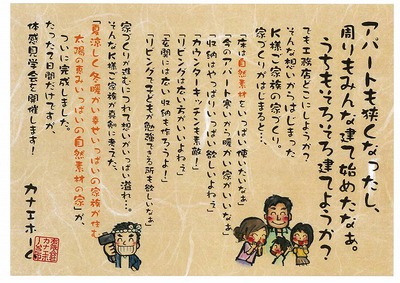 アパートも狭くなったし、
周りもみんな建て始めたなぁ。
うちもそろそろ建てようか？
でも工務店どこにしようか？
そんな想いからはじまった
K様ご家族の家づくり。
家づくりがはじまると…
「床は自然素材をいっぱい使いたいなぁ」
「今のアパート寒いから暖かい家がいいなぁ」
「収納はやっぱりいっぱい欲しいよねぇ」
「カウンターキッチンも素敵！」
「リビングは広い方がいいよねぇ」
「玄関には広い収納も作ろうよ！」
「リビングで子どもが勉強できる所も欲しいなぁ」
家づくりが進むにつれて想いがいっぱい溢れ…。
そんなK様ご家族が真剣に考えた、
「夏涼しく冬暖かい幸せいっぱいの家族が住む
太陽の恵みいっぱいの自然素材の家」が、
ついに完成しました。
たった二日間だけですが、
体感見学会を開催します！
カナエホーム